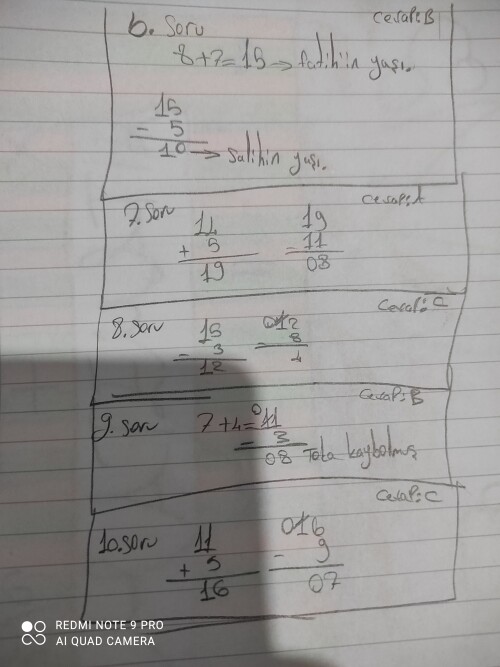 6. Soru
Cevap: B
8+7=15 → fatihin yaşı.
15
- 5
10 → Salihin yaşı.
7. Soru
Cevap: A
14 19
+ 5 - 11
19 08
8. Soru
Cevap: C
15 012
- 3 - 8
12 4
9. Soru
Cevap: B
7+4= 011
- 3
08 Toka kaybolmuş
10. Soru
Cevap: C
11 016
+ 5 - 9
16 07
REDMI NOTE 9 PRO
AI QUAD CAMERA